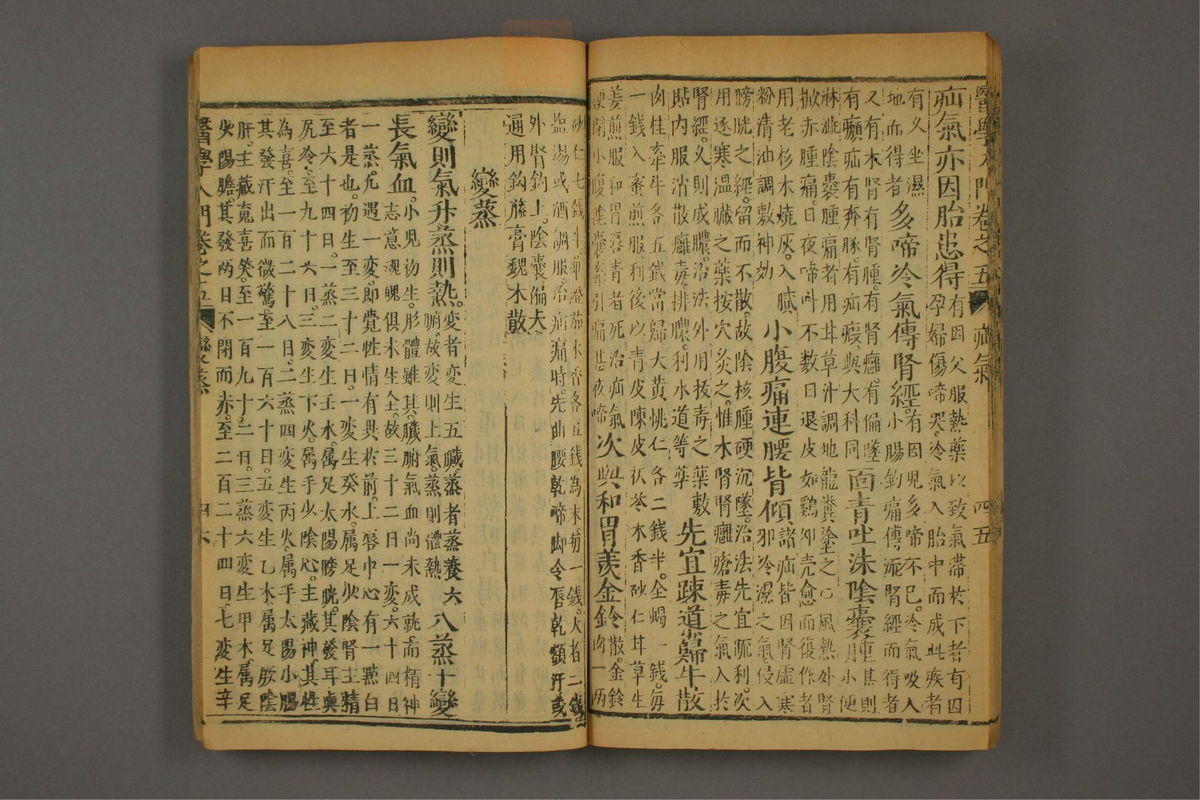 醫學入門卷之五 疝氣 四五
疝氣亦因胎患得有因父服熱藥以致氣滯於下者有因
孕婦傷啼哭冷氣入胎中而成此疾者
有久坐濕
地而得者多啼冷氣傳腎經有因兒多啼不已冷氣吸入
小腸鈎痛傳於腎經而得者
又有木腎有腎腫有腎癰有偏墜
有㿗疝有奔豚有疝瘕與大科同面青吐沫陰囊腫甚則
小便
淋澁陰囊腫痛者用甘草汁調地龍糞塗之○風熱外腎
掀赤腫痛日夜啼叫不數日退皮如鷄卵壳愈而復作者
用老杉木燒灰入膩
粉清油調敷神妙小腹痛連腰背傾諸疝皆因腎虛寒
邪冷濕之氣侵入
膀胱之經留而不散故陰核腫硬沉墜治法先宜疏利次
用逐寒溫臟之藥按穴灸之惟木腎腎癰瘡毒之氣入於
腎經久則成膿治法外用拔毒之藥敷
貼內服消散癰毒排膿利水道等藥先宜疎道歸牛散
肉桂牽牛各五錢當歸大黃桃仁各二錢半全蝎一錢每
一錢入蜜煎服利後以青皮陳皮茯苓木香砂仁甘草生
姜煎服和胃唇青者死治疝氣
便閉小腹陰囊牽引痛甚夜啼次與和胃羨金鈴散金鈴
肉一兩
砂仁七錢半蓽澄茄木香各五錢為末每一錢大者二錢
塩湯或酒調服治疝痛時先曲腰乾啼脚冷唇乾額汗或
外腎鈎上陰囊偏大
通用鈎藤膏魏木散
變蒸
變則氣升蒸則熱變者變生五臟蒸者蒸養六
腑故変則上氣蒸則體熱八蒸十變
長氣血小兒初生形體雖具臟腑氣血尚未成就而精神
志意魂魄俱未生全故三十二日一変六十四日
一蒸凡遇一変即覺性情有異於前上唇中心有一點白
者是也初生至三十二日一変生癸水属足少陰腎主精
至六十四日一蒸二変生壬水属足太陽膀胱其發耳與
尻冷至九十六日三変生丁火属手少陰心主藏神其性
為喜至一百二十八日二蒸四変生丙火属手太陽小腸
其發汗出而微驚至一百六十日五変生乙木属足厥陰
肝主藏䰟喜笑至一百九十二日三蒸六変生甲木属足
少陽膽其發兩目不閉而赤至二百二十四日七変生辛
醫學入門卷之五 變蒸 四六